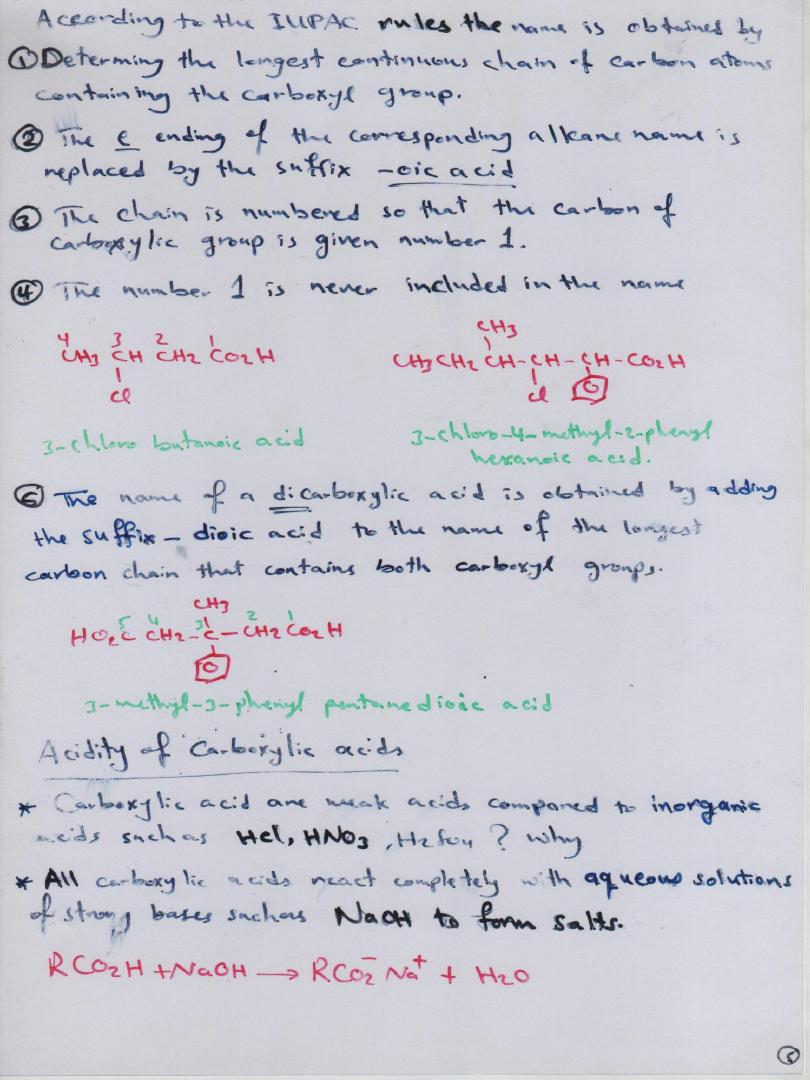 According to the IUPAC rules the name is obtained by
① Determing the longest continuous chain of carbon atoms
containing the carboxyl group.
② The e ending of the corresponding alkane name is
replaced by the suffix -oic acid
③ The chain is numbered so that the carbon of
carboxylic group is given number 1.
④ The number 1 is never included in the name
CH3
4 3 2 1
CH3 CH CH2 CO2H
CH3CH2 CH-CH-CH-CO2H
Cl
Cl
3-chloro butanoic acid
3-chloro-4-methyl-2-phenyl
hexanoic acid.
⑤ The name of a dicarboxylic acid is obtained by adding
the suffix - dioic acid to the name of the longest
carbon chain that contains both carboxyl groups.
CH3
5 4 3 2 1
HO2C CH2-C-CH2CO2H
3-methyl-3-phenyl pentanedioic acid
Acidity of Carboxylic acids
* Carboxylic acid are weak acids compared to inorganic
acids such as HCl, HNO3, H2SO4 ? why
* All carboxylic acids react completely with aqueous solutions
of strong bases such as NaOH to form salts.
RCO2H + NaOH → RCO2⁻ Na⁺ + H2O
5